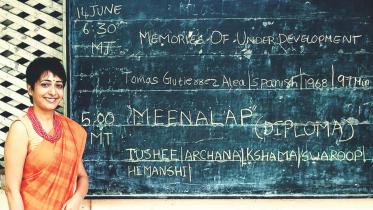 14 JUNE
6:30
MT
MEMORIES OF UNDER DEVELOPMENT
Tomas Gutierrez Alea | Spanish | 1968 | 97 Min
5.00
MT
"MEENALAP"
(DIPLOMA)
TUSHEE | ARCHANA | KSHAMA | SWAROOP |
HIMANSHI |